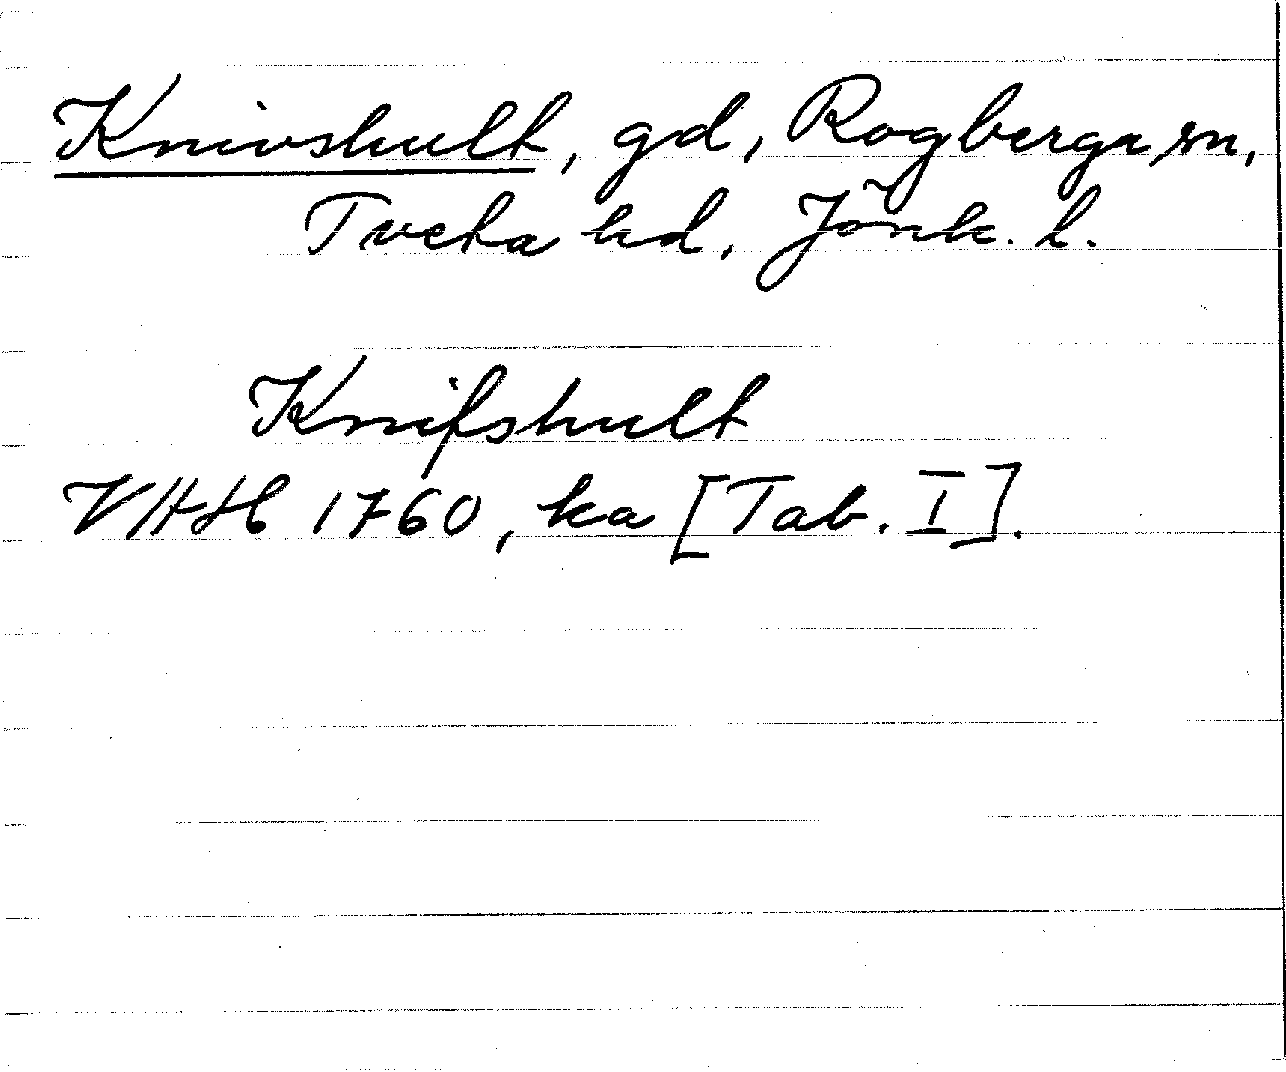 Knivshult, gd, Rogberga sn,
Tveta hd, Jönk. l.
Knifshult
VHAH 1760, ka [Tab. I].